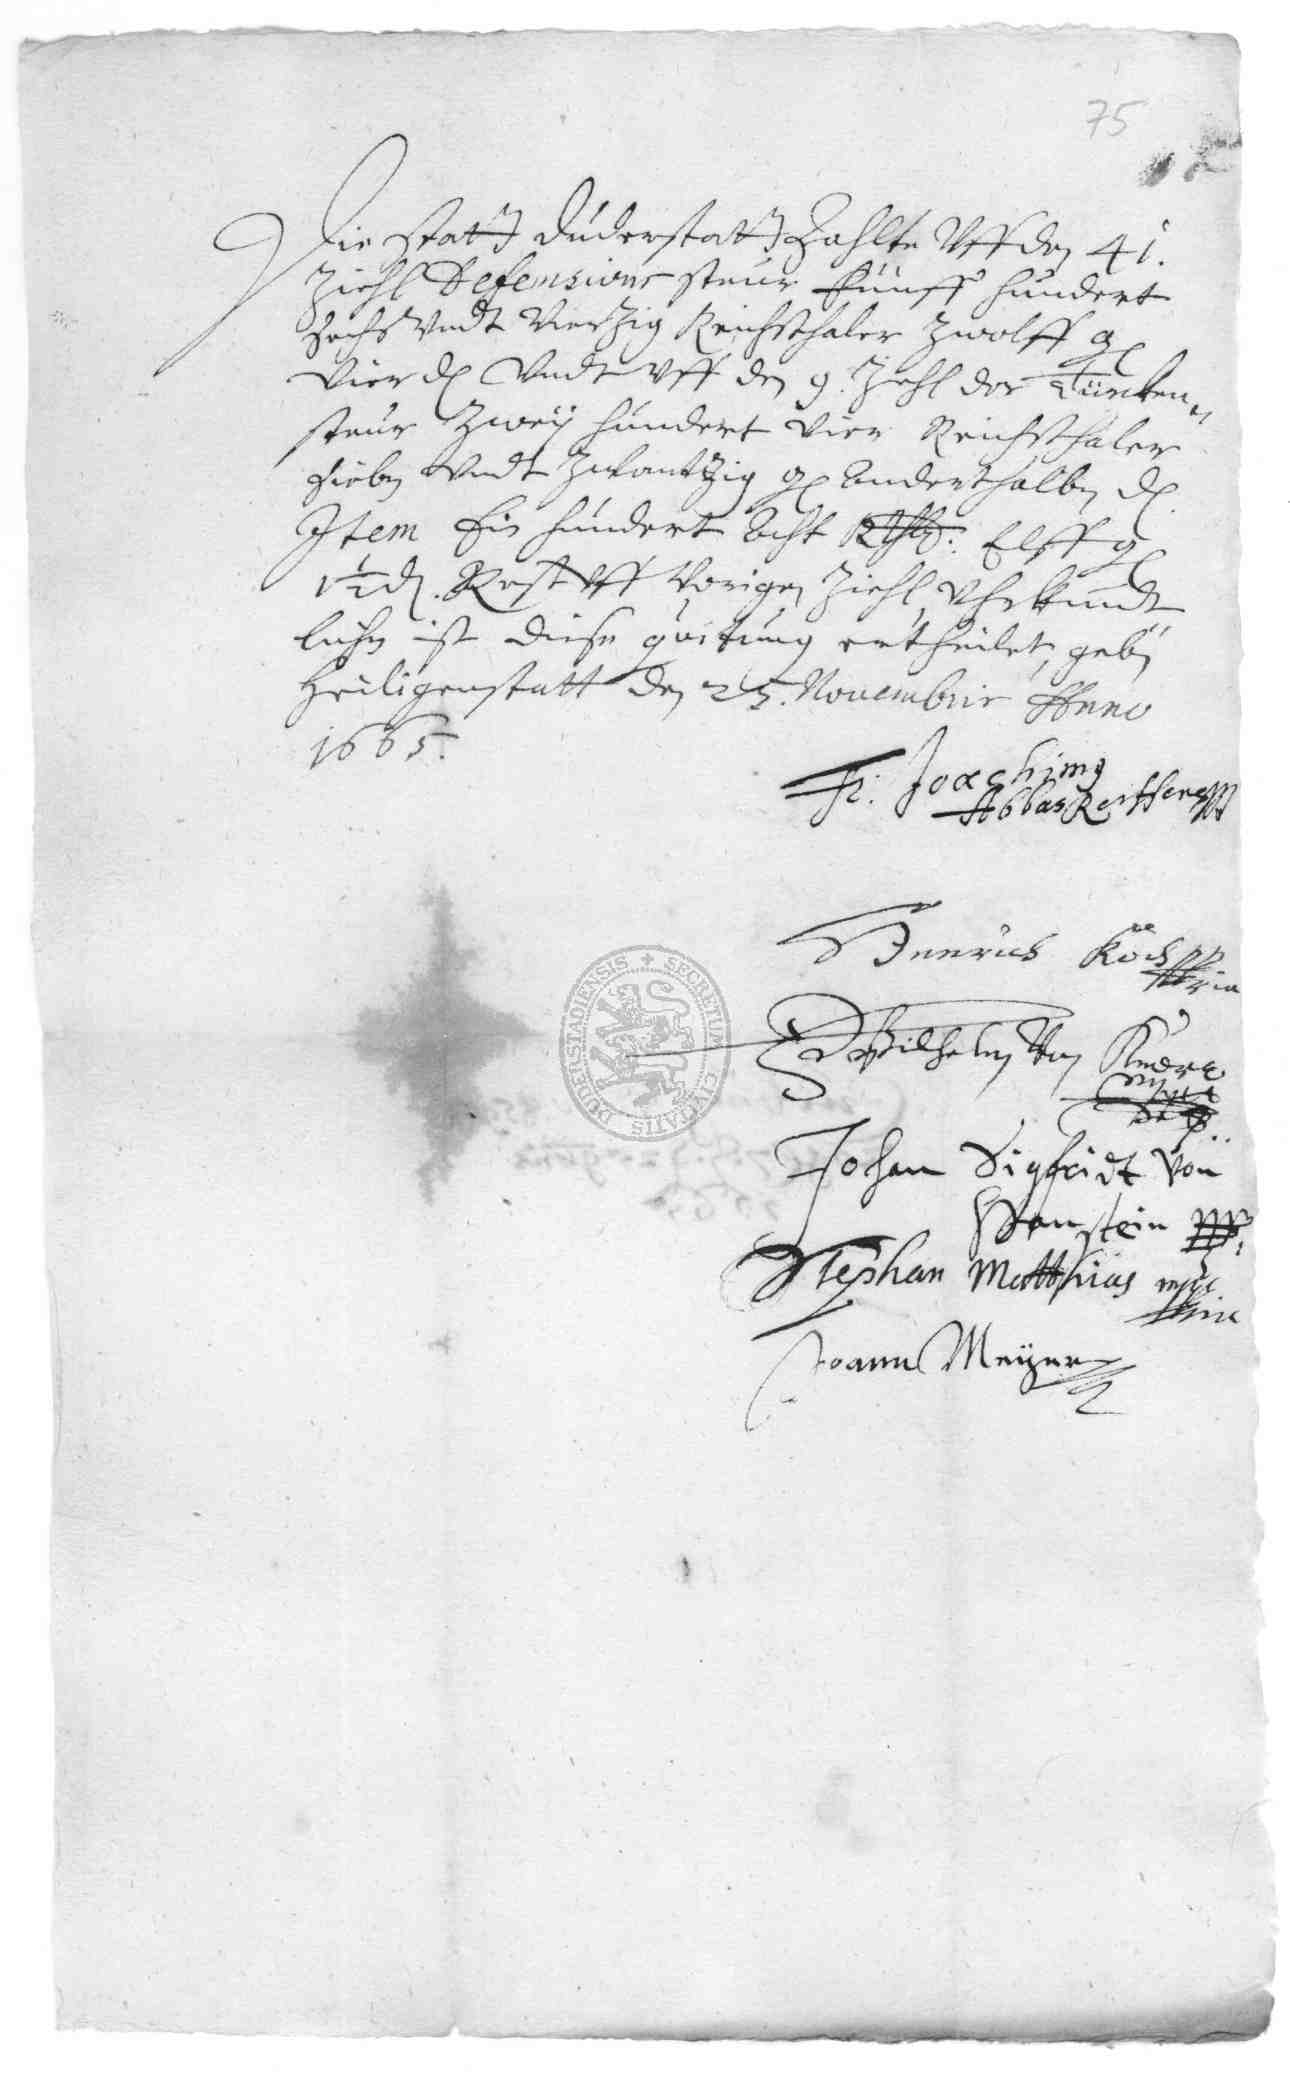 75
Die Statt Duderstatt Zahlte Vff den 41.
Ziehl Defensions steur fünff hundert
sechs Vndt Vierzig Reichsthaler Zwolff g
Vier d Vndt vff den 9. Ziehl der Türcken
steur Zweÿ hundert Vier Reichsthaler
sieben Vndt Zwantzig g Anderthalben d
Item Ein hundert Acht Rthlr: Elff g
1½ d. Rest Vff Vorigen Ziehl, Vhrkundt
lichen ist diese quitung ertheilet, geben
Heiligenstatt den 25. Novembris Anno
1665.
Fr. Joachimg
Abbas Reiffenst
Henrich Koch mp
pria
Wilhelm Von
Johan Sigfridt Von
Hanstein mp
Stephan Matthias mpp
Joann Meÿer
SECRETUM CIVITATIS DUDERSTADIENSIS